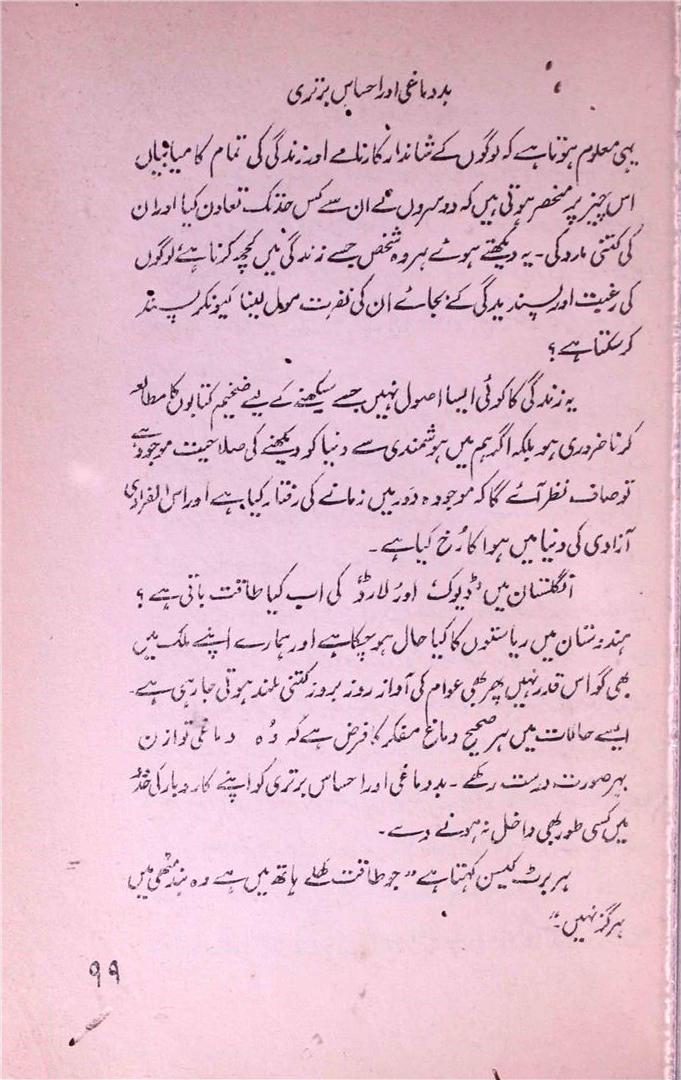 بد دماغی اور احساس برتری
یہی معلوم ہوتا ہے کہ لوگوں کے شاندار کارنامے اور زندگی کی تمام کامیابیاں
اس چیز پر منحصر ہوتی ہیں کہ دوسروں نے ان سے کس حد تک تعاون کیا اور ان
کی کتنی مدد کی۔ یہ دیکھتے ہوئے ہر وہ شخص جسے زندگی میں کچھ کرنا ہے لوگوں
کی رغبت اور پسندیدگی کے بجائے ان کی نفرت مول لینا کیونکر پسند
کر سکتا ہے؟
یہ زندگی کا کوئی ایسا اصول نہیں جسے سیکھنے کے لیے ضخیم کتابوں کا مطالعہ
کرنا ضروری ہو بلکہ اگر ہم میں ہوشمندی سے دنیا کو دیکھنے کی صلاحیت موجود ہے
تو صاف نظر آئے گا کہ موجودہ دَور میں زمانے کی رفتار کیا ہے اور اس انفرادی
آزادی کی دنیا میں ہوا کا رُخ کیا ہے۔
انگلستان میں "ڈیوک اور لارڈ" کی اب کیا طاقت باقی ہے؟
ہندوستان میں ریاستوں کا کیا حال ہو چکا ہے اور ہمارے اپنے ملک میں
بھی گو اس قدر نہیں پھر بھی عوام کی آواز روز بروز کتنی بلند ہوتی جا رہی ہے۔
ایسے حالات میں ہر صحیح دماغ مفکر کا فرض ہے کہ وُہ دماغی توازن
بہر صورت درست رکھے۔ بد دماغی اور احساس برتری کو اپنے کاروبار کی حد
میں کسی طور بھی داخل نہ ہونے دے۔
ہربرٹ کیسن کہتا ہے "جو طاقت کھلے ہاتھ میں ہے وہ بند مٹھی میں
ہرگز نہیں۔"
۹۹